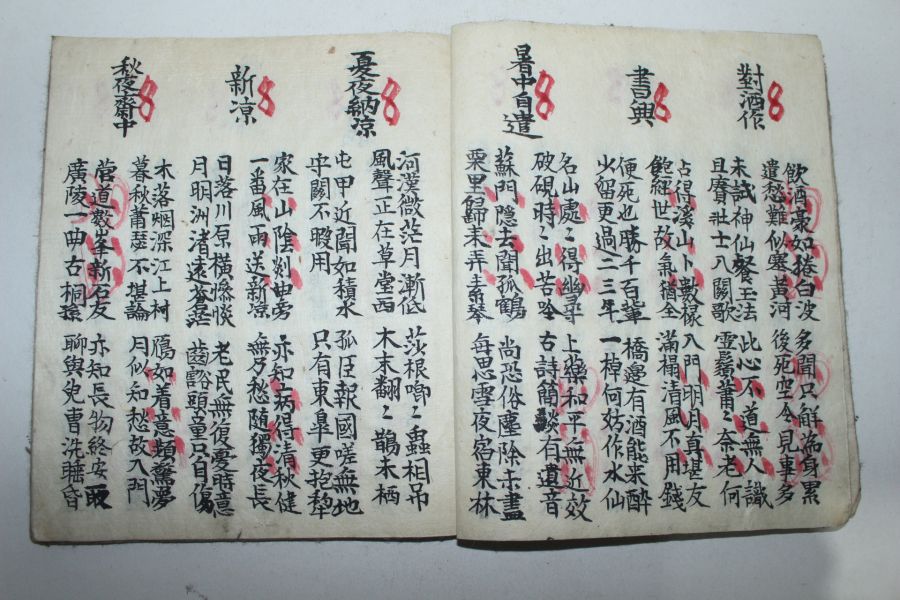 對酒作
飲酒豪如捲白波 多聞只解為身累
遣愁難似塞黃河 後死空令見事多
未試神仙餐玉法 此心不道無人識
且賡壯士八關歌 雪鬢蕭〻奈老何
書興
占得溪山卜數椽 入門明月真堪友
飽經世故氣猶全 滿榻清風不用錢
便死也勝千百輩 橋邊有酒能來醉
火留更過二三年 一棹何妨作水仙
暑中自遣
名山處〻得幽尋 上藥和平無近效
破硯時〻出苦吟 古詩簡談有遺音
蘇門隱去聞孤鶴 尚恐俗塵除未盡
栗里歸來弄素琴 每思雪夜宿東林
夏夜納凉
河漢微茫月漸低 莎根喞〻蟲相吊
風聲正在草堂西 木末翻〻鵲未栖
屯甲近聞如積水 孤臣報國嗟無地
守關不暇用 只有東皐更抱犂
新凉
家在山陰剡曲旁 亦知病得清秋健
一番風雨送新凉 無乃愁隨獨夜長
日落川原橫慘惔 老民無復憂時意
月明洲渚遠蒼茫 齒豁頭童只自傷
秋夜齋中
木落烟深江上村 鴈如着意頻驚夢
暮秋莆瑟不堪論 月似知愁故入門
營道數峯新石友 亦知長物終安取
廣陵一曲古桐孫 聊與兒曹洗睡昏